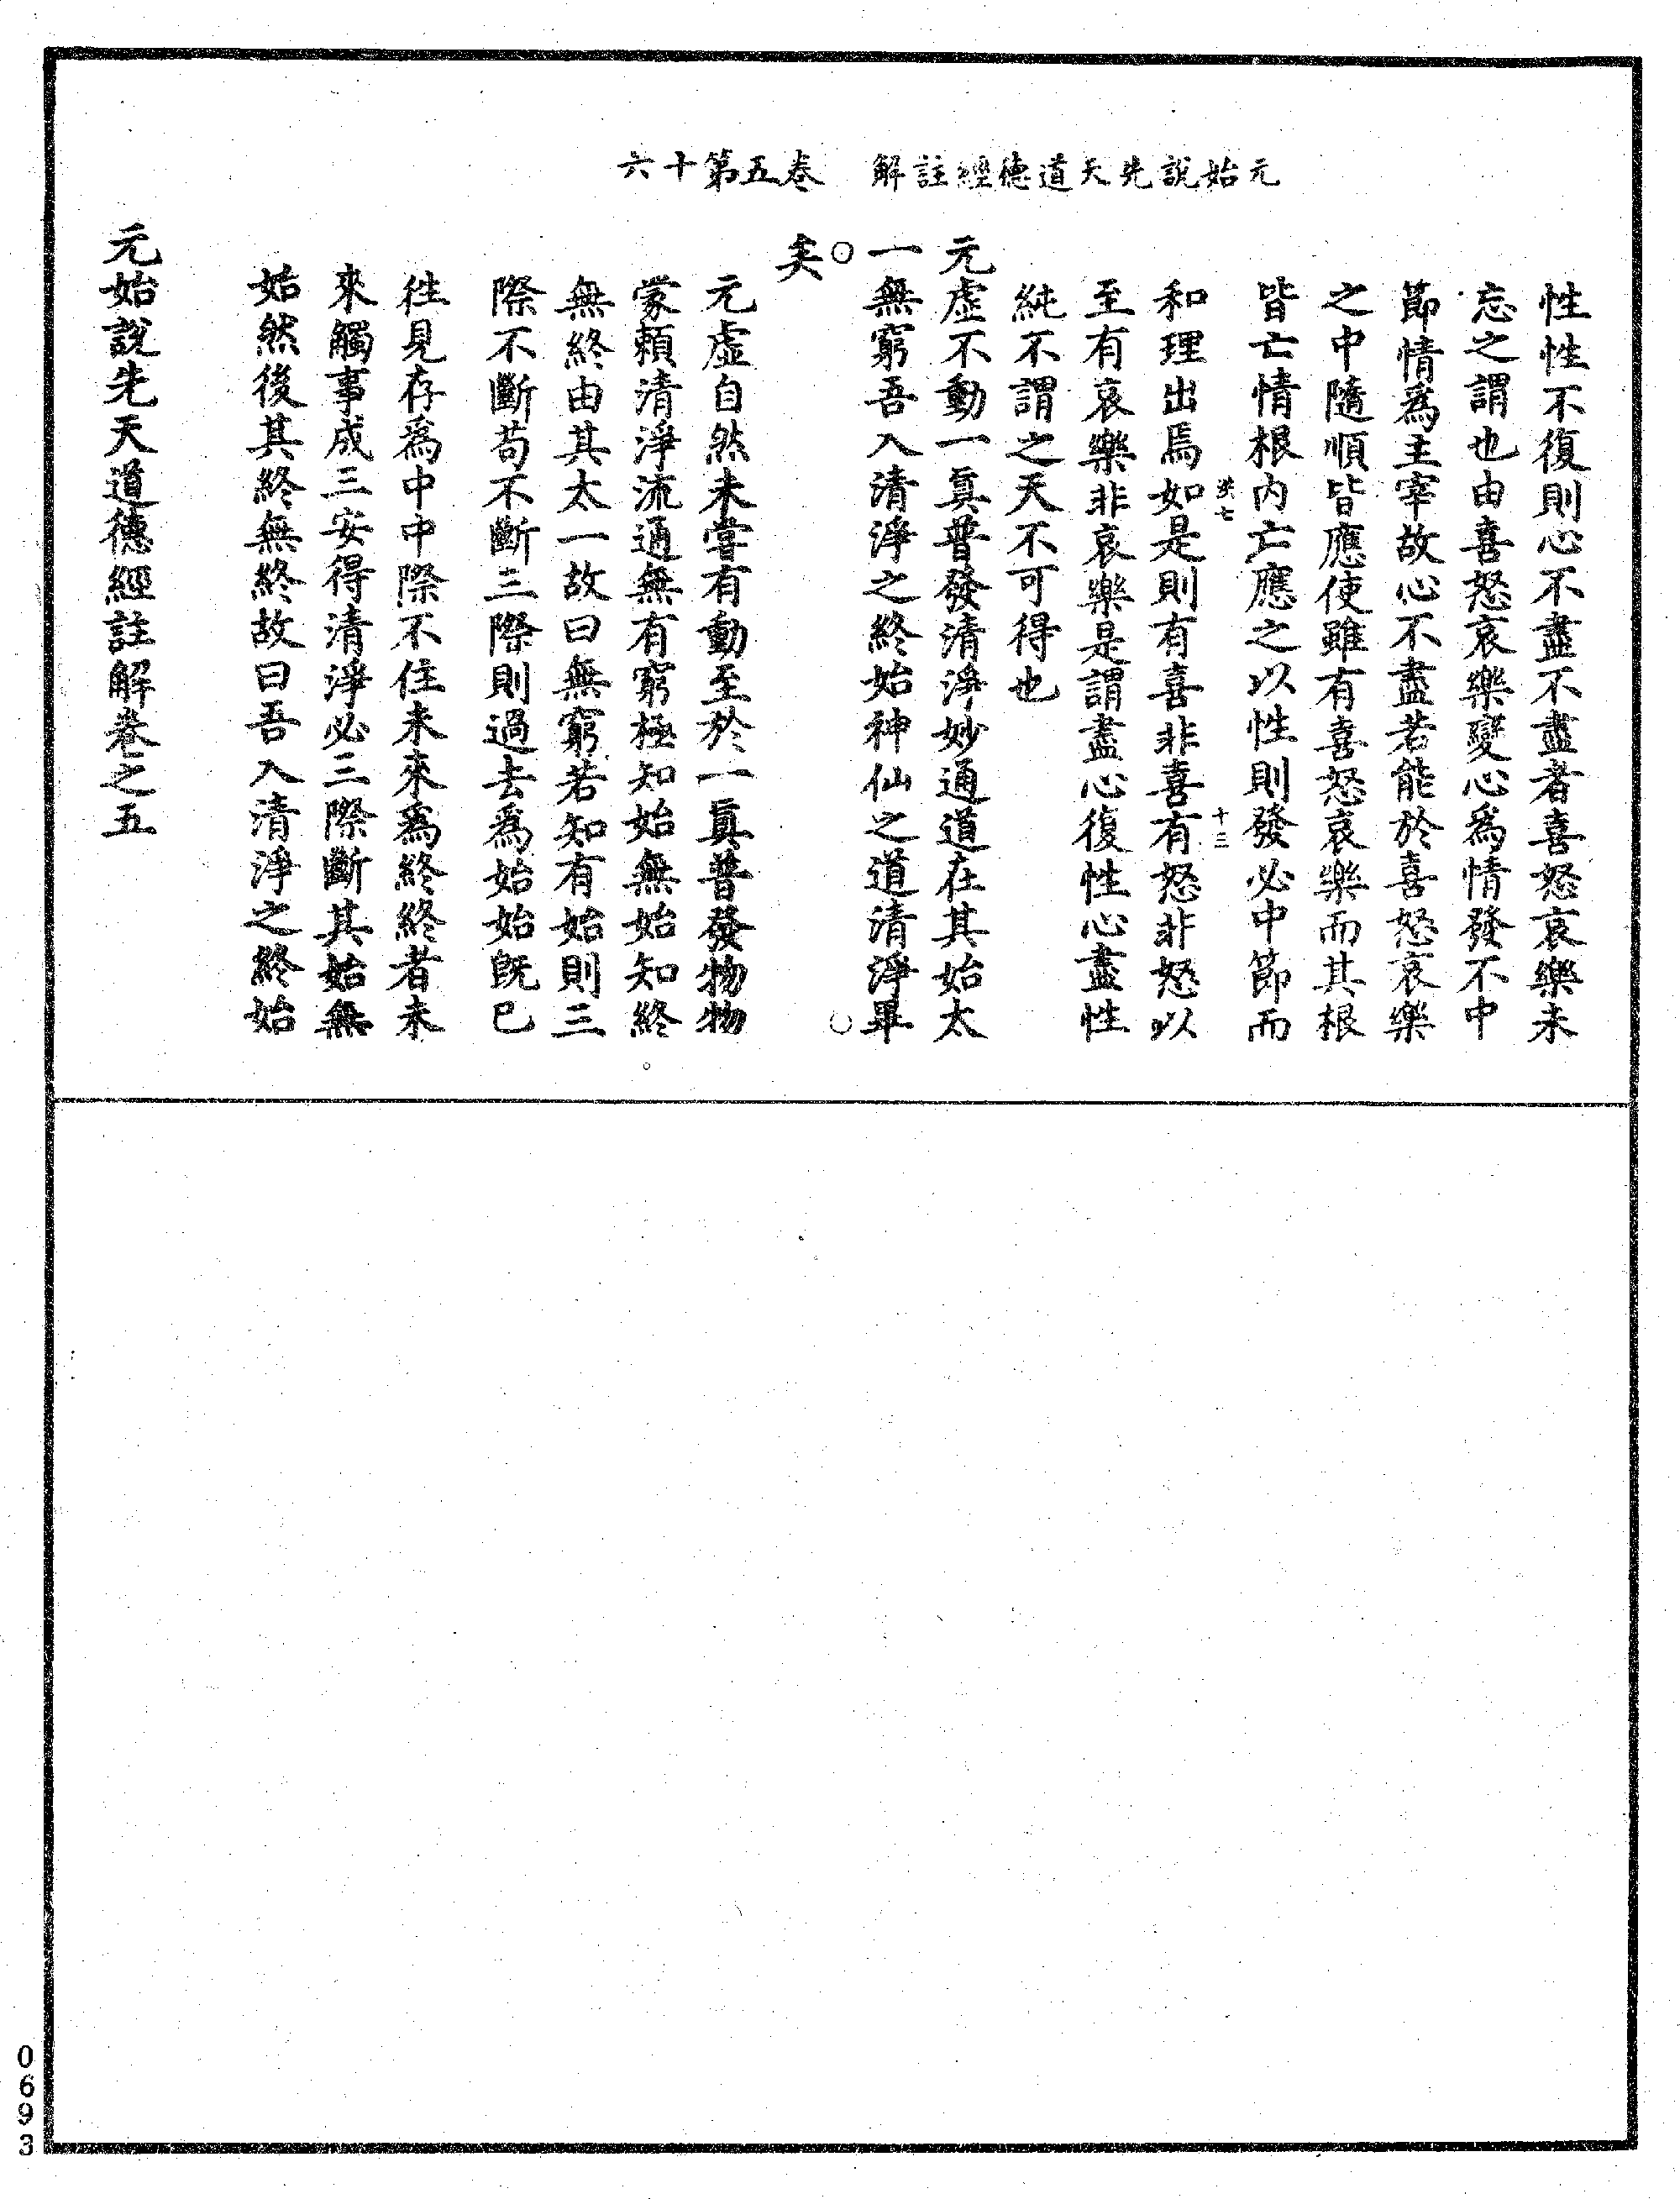 元始說先天道德經註解　卷五第十六
性性不復則心不盡不盡者喜怒哀樂未
忘之謂也由喜怒哀樂變心為情發不中
節情為主宰故心不盡若能於喜怒哀樂
之中隨順皆應使雖有喜怒哀樂而其根
皆亡情根內亡應之以性則發必中節而
十三
和理出焉如是則有喜非喜有怒非怒以
至有哀樂非哀樂是謂盡心復性心盡性
純不謂之天不可得也
元虛不動一真普發清淨妙通道在其始太
一無窮吾入清淨之終始神仙之道清淨畢
矣
元虛自然未嘗有動至於一真普發物物
蒙賴清淨流通無有窮極知始無始知終
無終由其太一故曰無窮若知有始則三
際不斷苟不斷三際則過去為始始既已
徃見存為中中際不住未來為終終者未
來觸事成三安得清淨必三際斷其始無
始然後其終無終故曰吾入清淨之終始
元始說先天道德經註解卷之五
0693